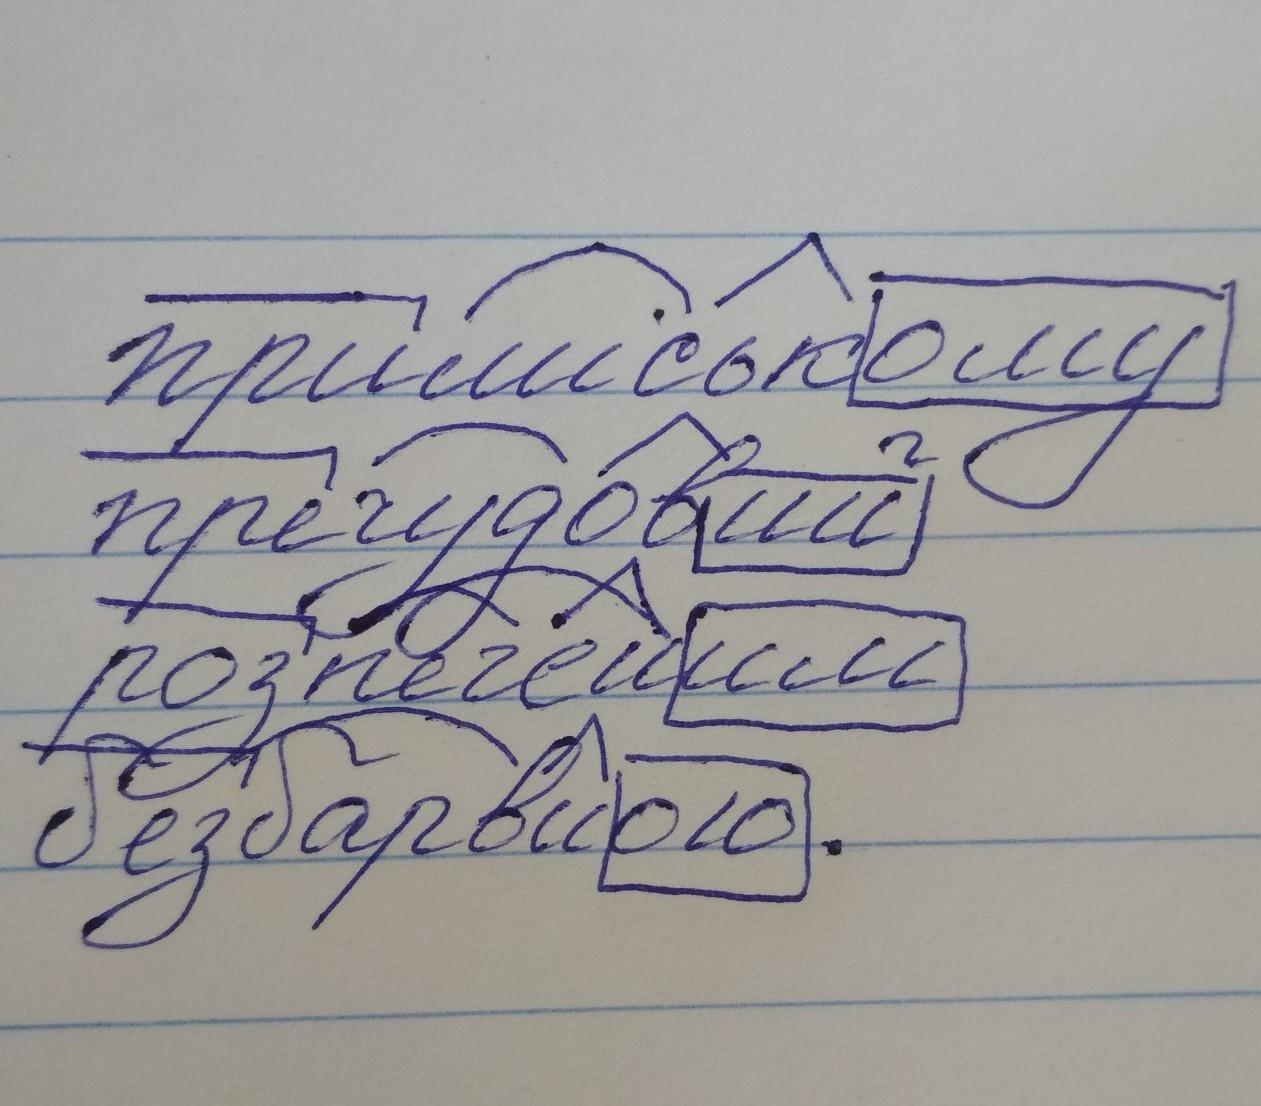 приміському
пречудовий
розпеченим
безбарвною.